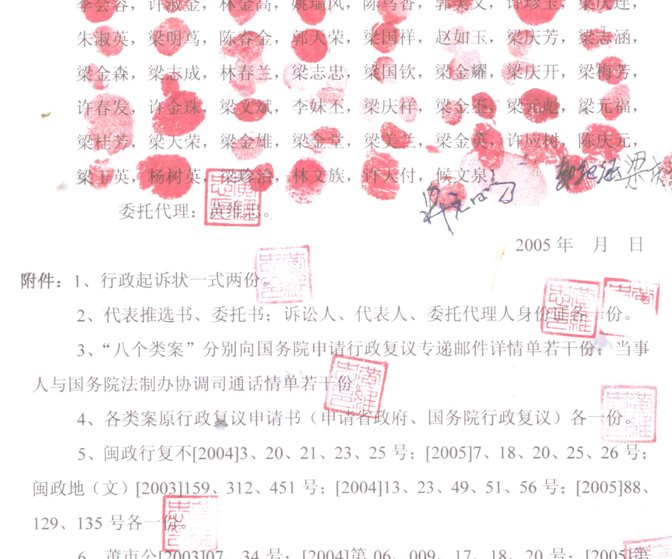 李会容，许淑金，林金高，姚瑞凤，陈鸟香，郭美文，许珍玉，梁庆连，
朱淑英，梁明笃，陈春金，郭大荣，梁国祥，赵如玉，梁庆芳，梁志涵，
梁金森，梁志成，林春兰，梁志忠，梁国钦，梁金耀，梁庆开，梁梅芳，
许春发，许金珠，梁文斌，李妹丕，梁庆祥，梁金丕，梁元彪，梁元福，
梁桂芳，梁大荣，梁金雄，梁金堂，梁美兰，梁金英，许应树，陈庆元，
梁玉英，杨树英，梁珍治，林文族，许天付，候文泉；
委托代理：黄维忠。
2005年 月 日
附件：1、行政起诉状一式两份。
2、代表推选书、委托书；诉讼人、代表人、委托代理人身份证各一份。
3、“八个类案”分别向国务院申请行政复议专递邮件详情单若干份；当事
人与国务院法制办协调司通话情单若干份。
4、各类案原行政复议申请书（申请省政府、国务院行政复议）各一份。
5、闽政行复不[2004]3、20、21、23、25号；[2005]7、18、20、25、26号；
闽政地（文）[2003]159、312、451号；[2004]13、23、49、51、56号；[2005]88、
129、135号各一份。
6、莆市公[2003]07、34号；[2004]第06、009、17、18、20号；[2005]第